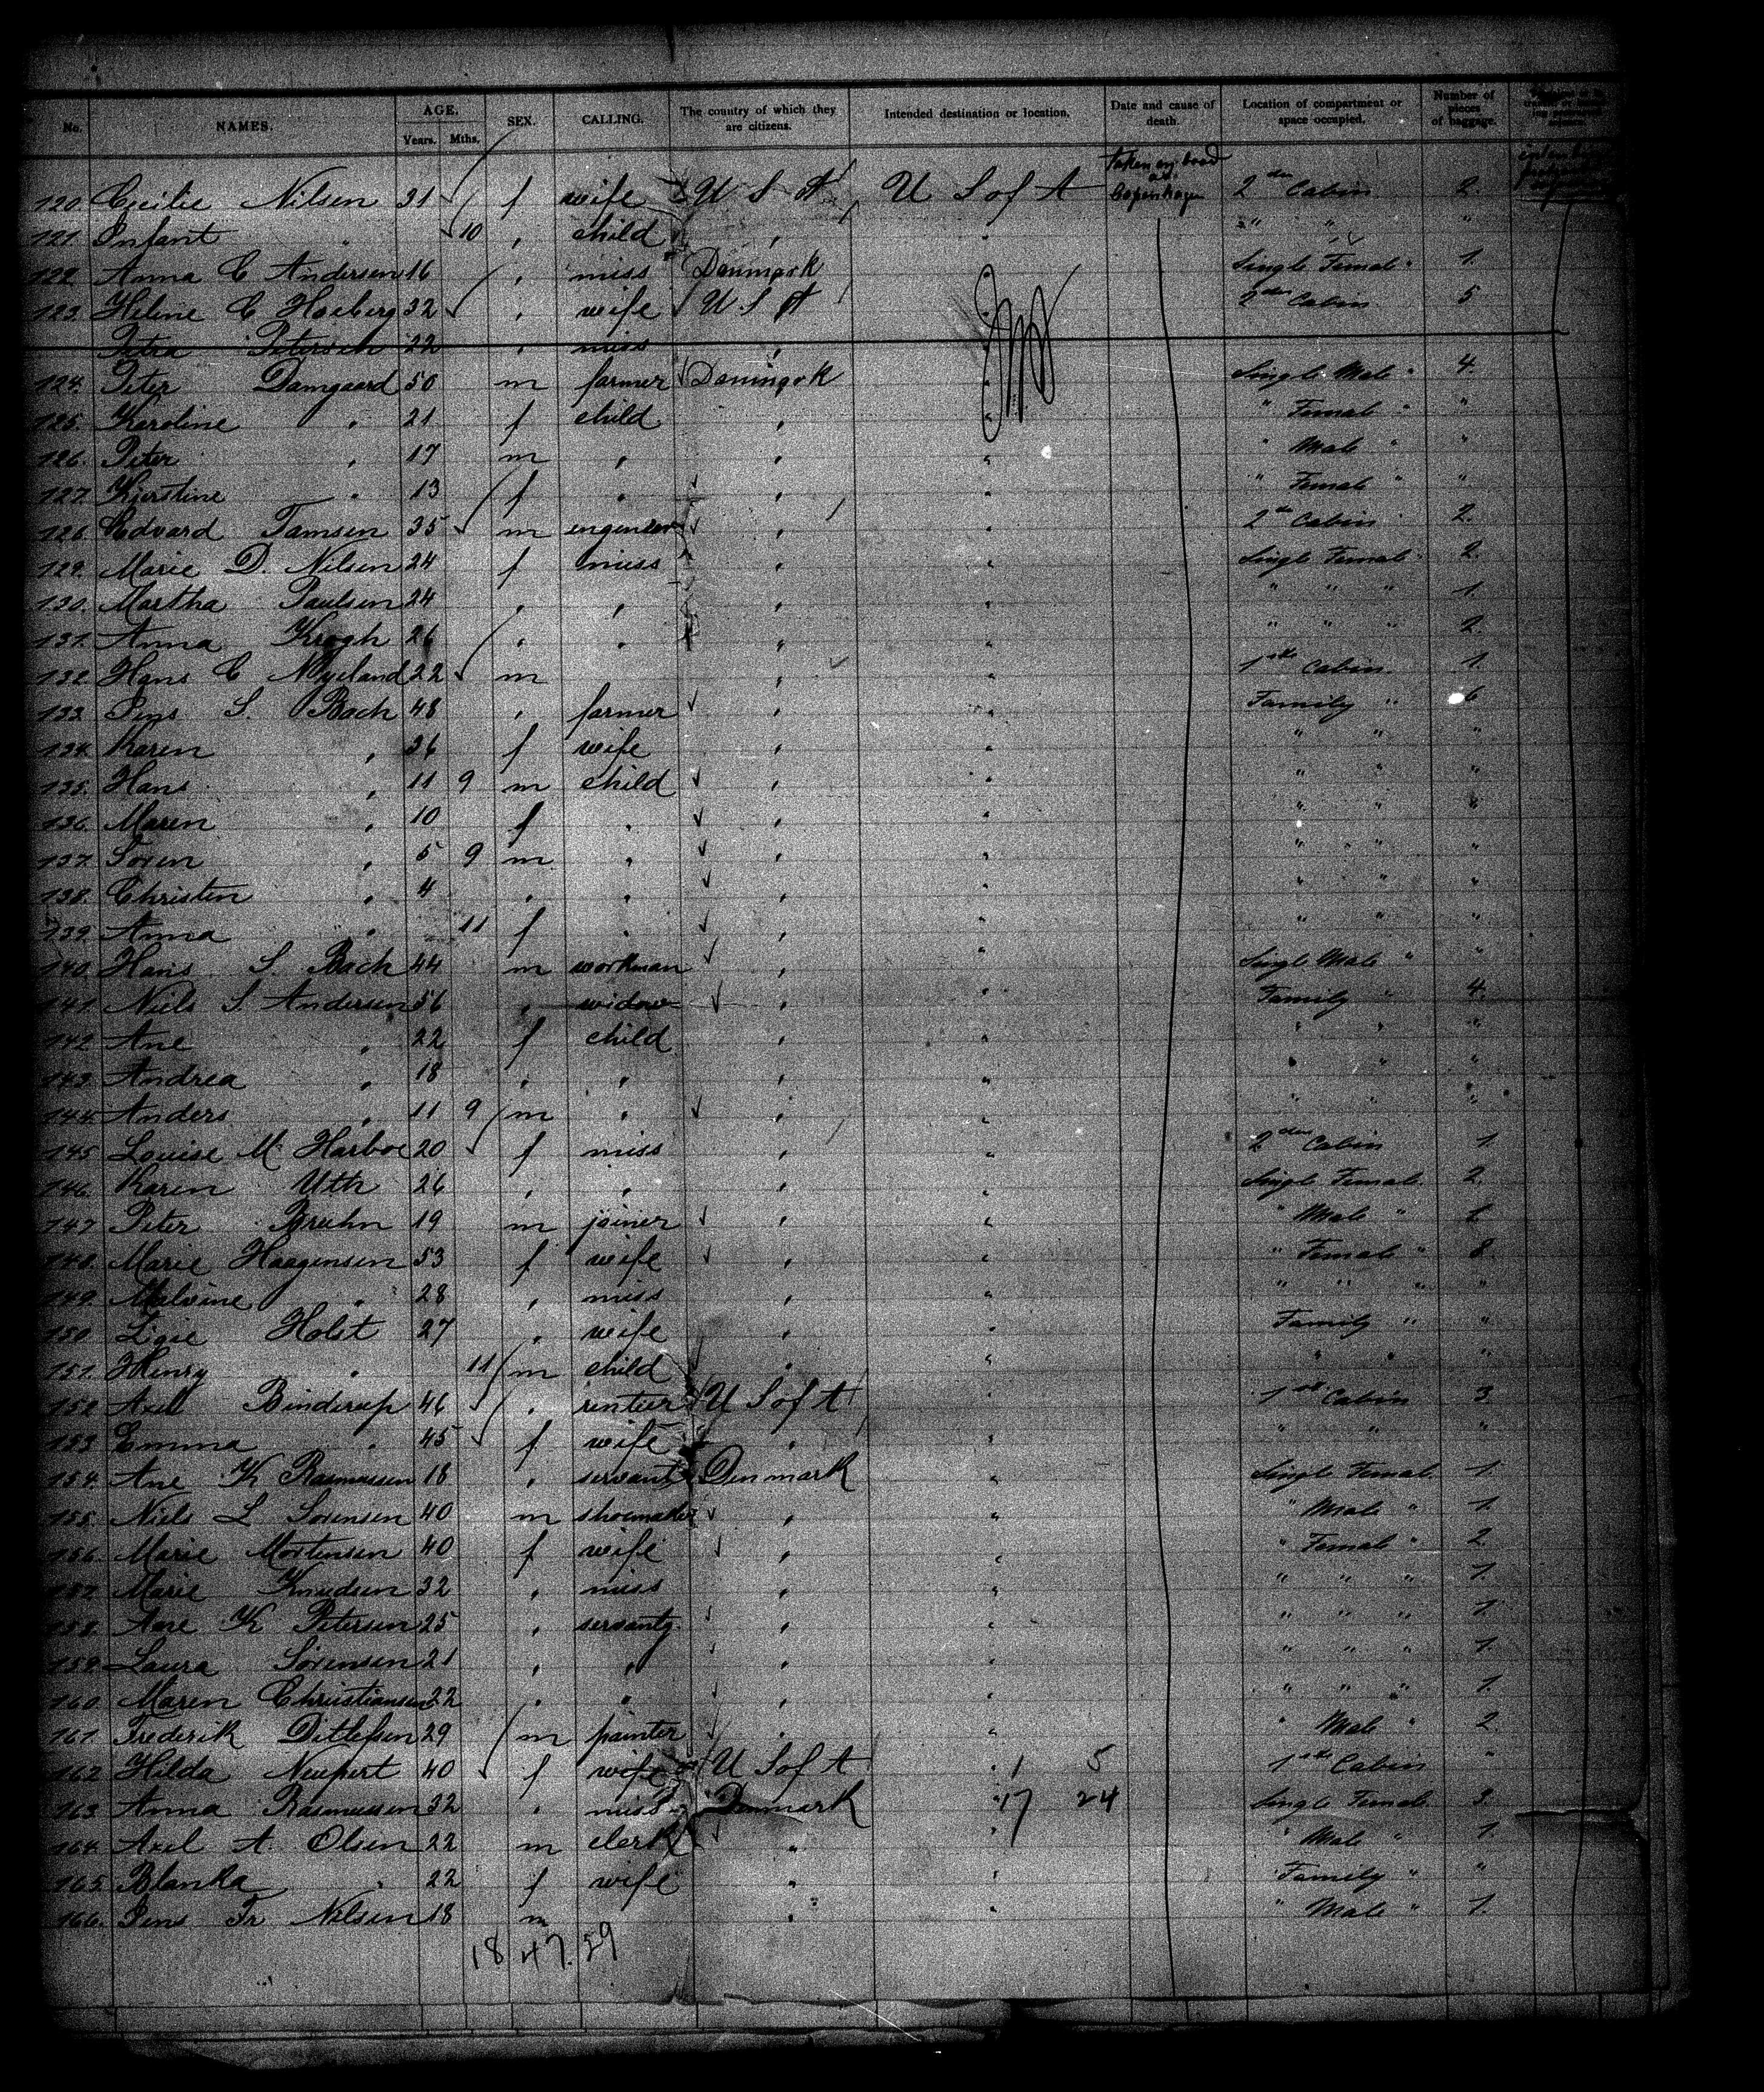 No. NAMES. AGE. Years. Mths. SEX. CALLING. The country of which they are citizens. Intended destination or location. Date and cause of death. Location of compartment or space occupied. Number of pieces of baggage.
taken on board at Copenhagen
120. Cecilie Nilsen 31 f wife U S A U S of A 2den Cabin 2.
121. Infant " 10 " child " " " " "
122. Anna C Andersen 16 " miss Danmark " Single Female " 1.
123. Heline C Hoeberg 32 " wife U. S. A " 2den Cabin 5
Petra Petersen 22 " miss "
124. Peter Damgaard 50 m farmer Danmark " Single Male " 4.
125. Karoline " 21 f child " " " Female " "
126. Peter " 17 m " " " " Male " "
127. Kjerstine " 13 f " " " " Female " "
128. Edvard Tamsen 35 m engenier " " 2de Cabin 2.
129. Marie D. Nilsen 24 f miss " " Single Female 2.
130. Martha Paulsen 24 " " " " " " " 1.
131. Anna Krogh 26 " " " " " " " 2.
132. Hans C Nyeland 22 m " " 1ste Cabin 1.
133. Jens S. Bach 48 " farmer " " Family " 6
134. Karen " 36 f wife " " " " "
135. Hans " 11 9 m child " " " " "
136. Maren " 10 f " " " " " "
137. Soren " 5 9 m " " " " " "
138. Christen " 4 " " " " " " "
139. Anna " 11 f " " " " " "
140. Hans S. Bach 44 m workman " " Single Male " "
141. Niels S. Andersen 56 " widow " " Family " 4.
142. Ane " 22 f child " " " " "
143. Andrea " 18 " " " " " " "
144. Anders " 11 9 m " " " " " "
145. Louise M. Harboe 20 f miss " " 2den Cabin 1.
146. Karen Uth 26 " " " " Single Female 2.
147. Peter Bruhn 19 m joiner " " " Male "
148. Marie Haagensen 53 f wife " " " Female " 8.
149. Malvine " 28 " miss " " " " " "
150. Holst 27 " wife " " Family " "
151. Henry " 11 m child " " " " "
152. Axel Binderup 46 " rentier U S of A " 1ste Cabin 3.
153. Emma " 45 f wife " " " " "
154. Ane K Rasmussen 18 " servant Denmark " Single Female 1.
155. Niels L Sorensen 40 m shoemaker " " " Male " 1.
156. Marie Mortensen 40 f wife " " " Female " 2.
157. Marie Knudsen 32 " miss " " " " " 1.
158. Ane K Petersen 25 " servantg. " " " " " 1.
159. Laura Sorensen 21 " " " " " " " 1.
160. Maren Christiansen 22 " " " " " " " 1.
161. Frederik Ditlefsen 29 m painter " " " Male " 2.
162. Hilda Neupert 40 f wife U S of A " 1 5 1ste Cabin "
163. Anna Rasmussen 32 " miss Denmark " 17 24 Single Female 3.
164. Axel A. Olsen 22 m clerk " " " Male " 1.
165. Blanka " 22 f wife " " Family " "
166. Jens Fr Nilsen 18 m " " " Male " 1.
18 47. 59